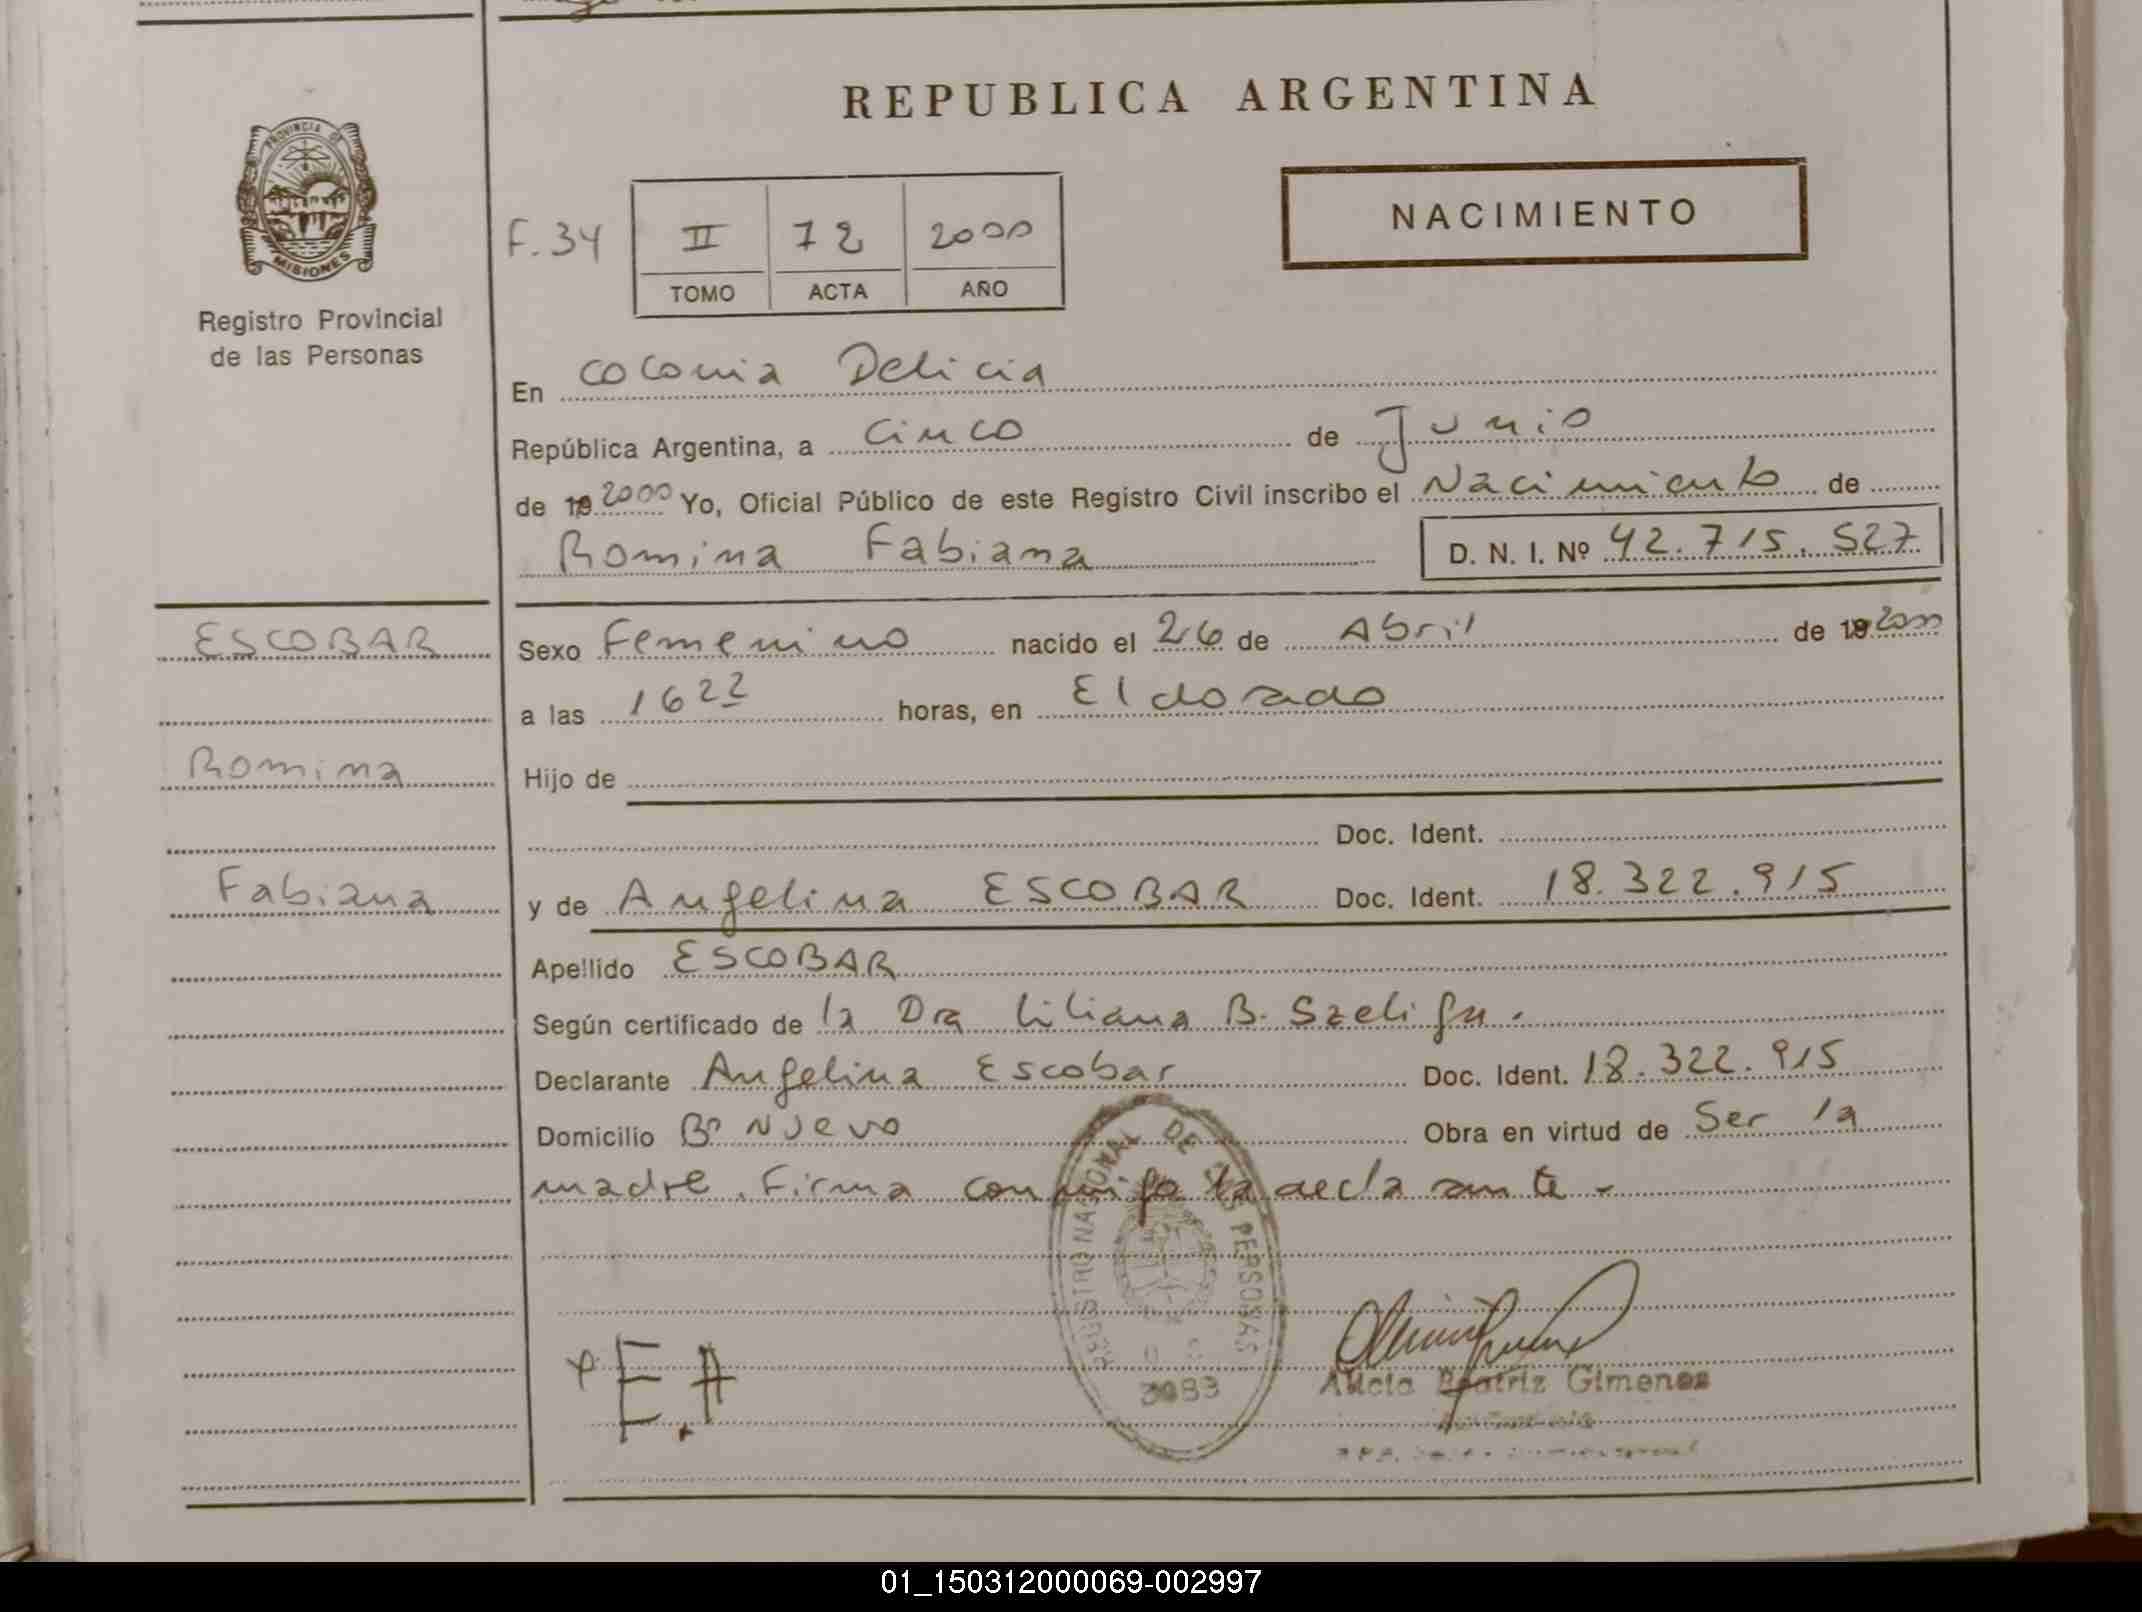 REPUBLICA ARGENTINA
PROVINCIA DE
MISIONES
Registro Provincial
de las Personas
F. 34
II 72 2000
TOMO ACTA AÑO
NACIMIENTO
En Colonia Delicia
República Argentina, a Cinco de Junio
de 19 2000 Yo, Oficial Público de este Registro Civil inscribo el Nacimiento de
Romina Fabiana D. N. I. Nº 42.715.527
ESCOBAR
Romina
Fabiana
Sexo Femenino nacido el 26 de Abril de 19 2000
a las 16 22 horas, en Eldorado
Hijo de
Doc. Ident.
y de Angelina ESCOBAR Doc. Ident. 18.322.915
Apellido ESCOBAR
Según certificado de la Dra Liliana B. Szeliga.
Declarante Angelina Escobar Doc. Ident. 18.322.915
Domicilio Bº Nuevo Obra en virtud de Ser la
madre. Firma conmigo la declarante -
REGISTRO NACIONAL DE LAS PERSONAS
3093
E.A
Alicia Beatriz Gimenez
01_150312000069-002997